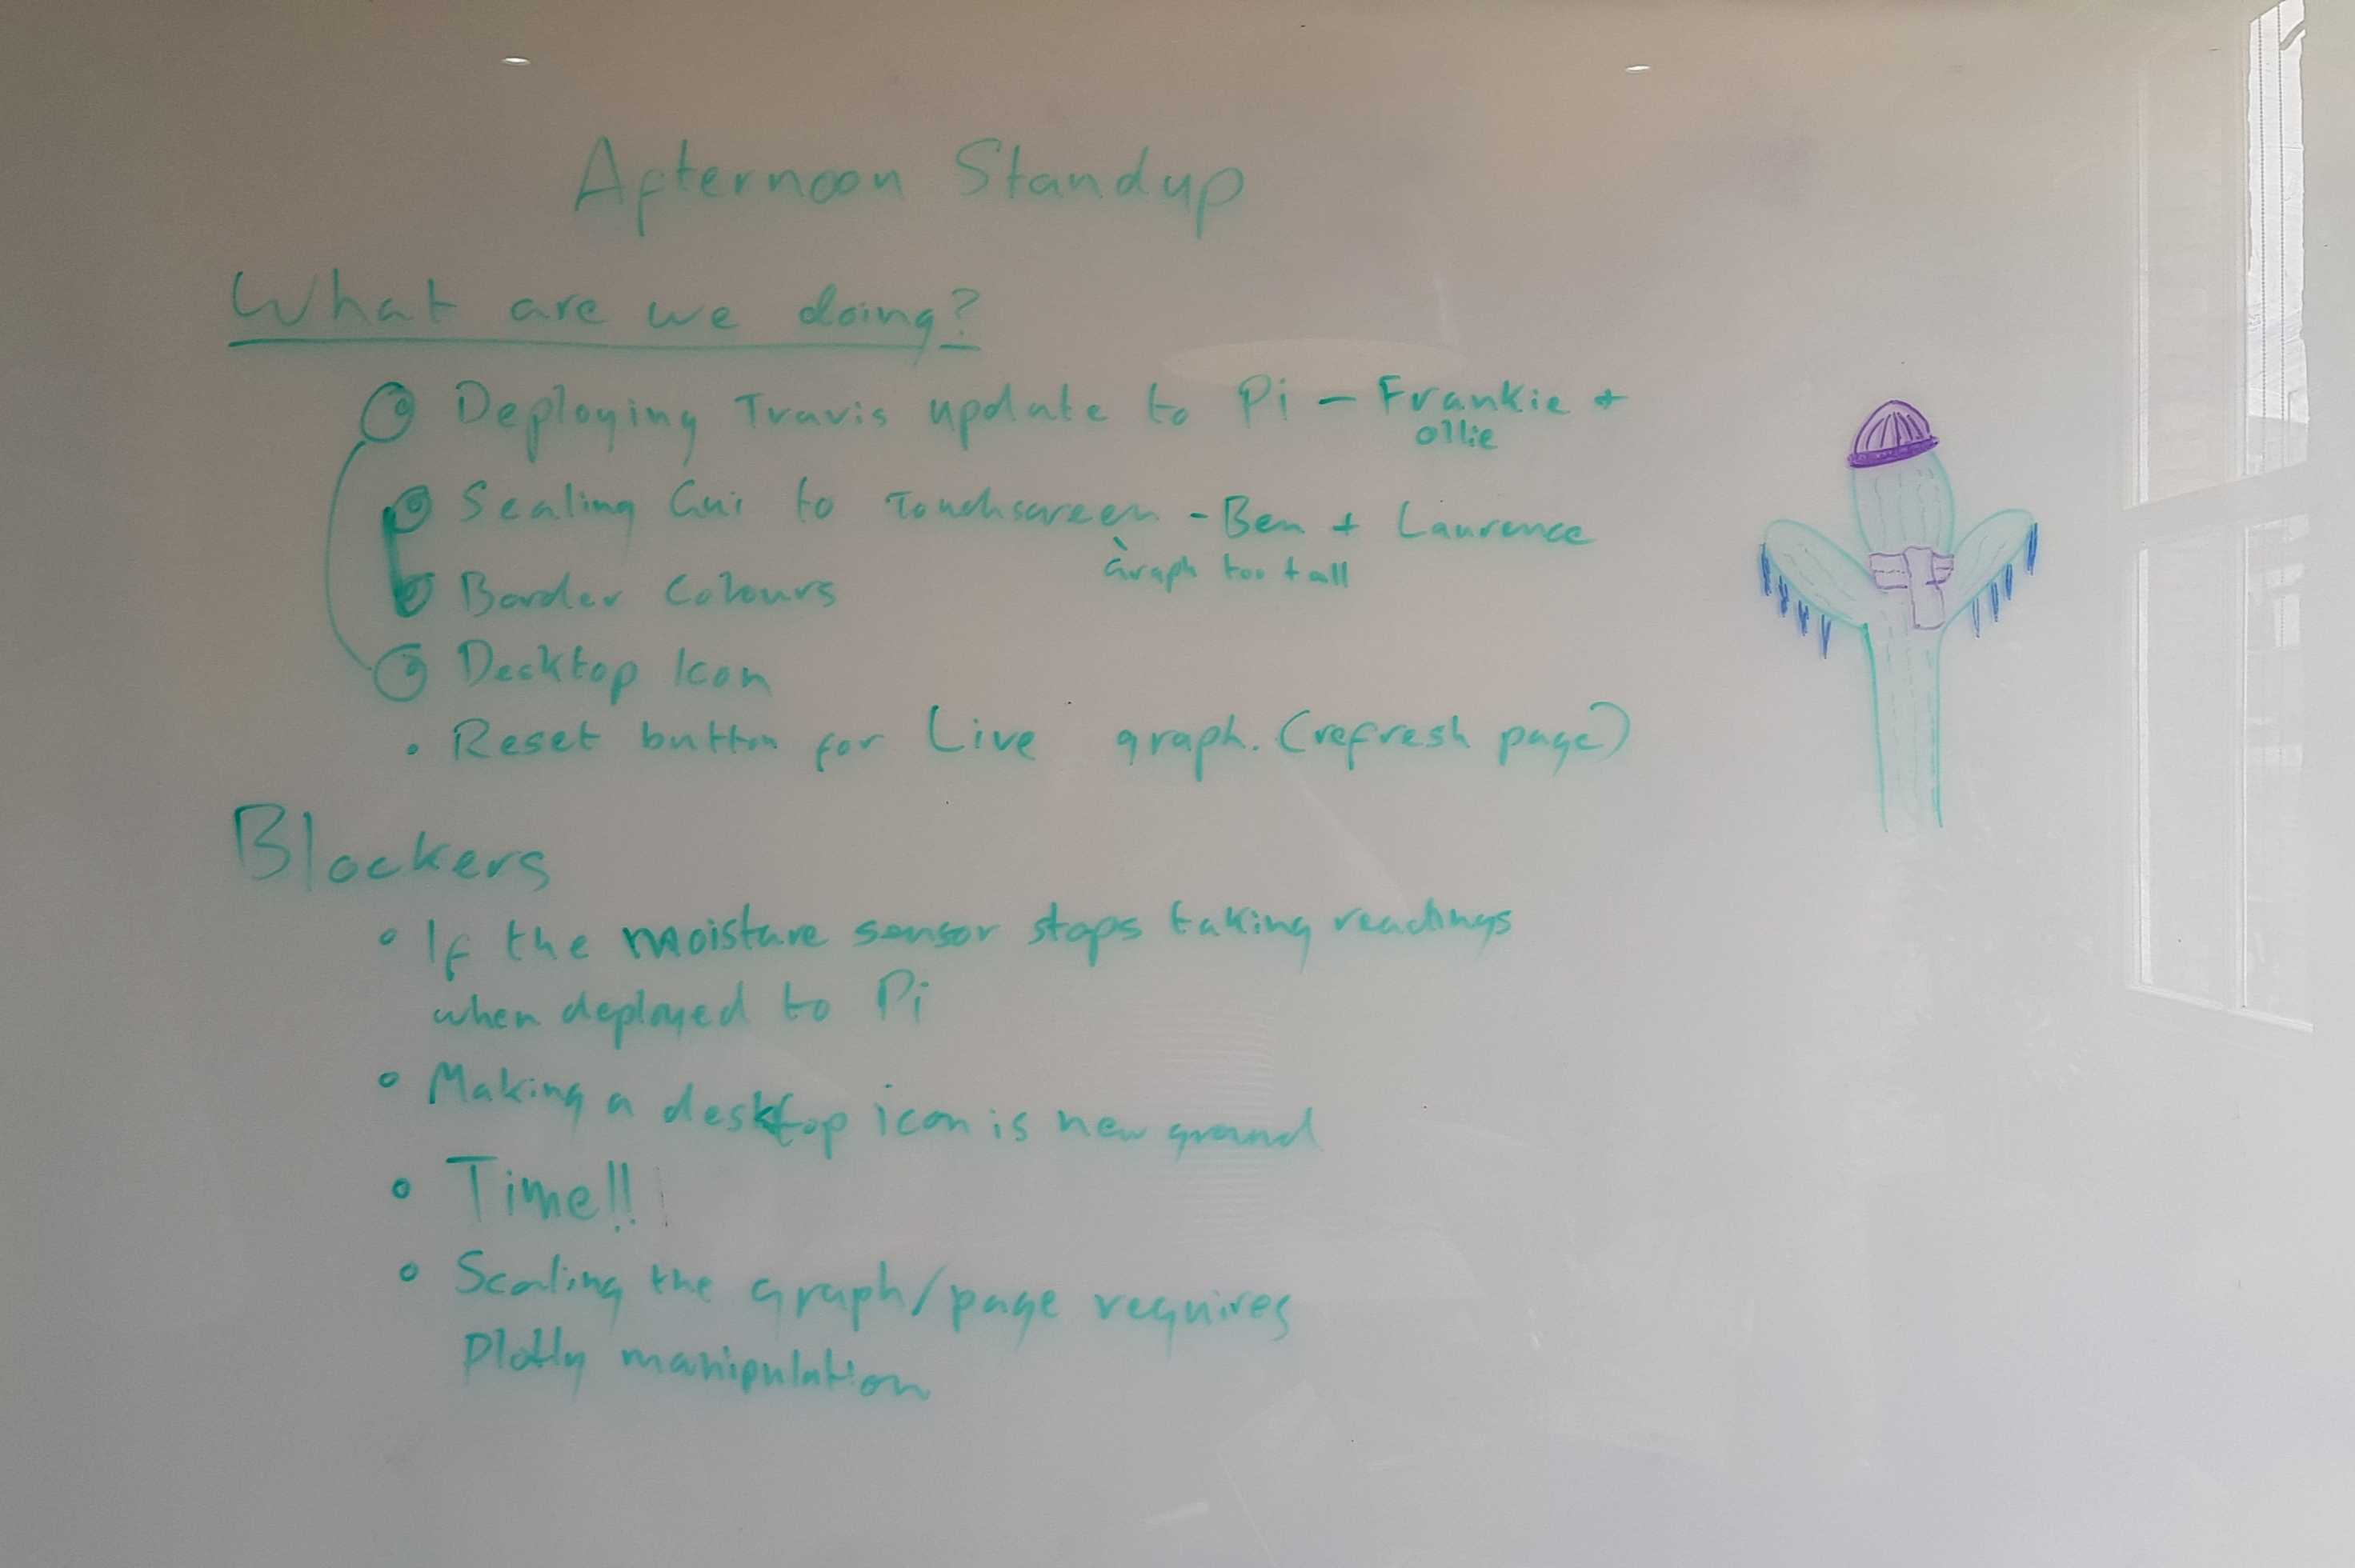 Afternoon Standup
What are we doing?
Deploying Travis update to Pi - Frankie +
ollie
Scaling Gui to Touchscreen - Ben + Laurence
Graph too tall
Border Colours
Desktop Icon
• Reset button for Live graph. (refresh page)
Blockers
• If the moisture sensor stops taking readings
when deployed to Pi
• Making a desktop icon is new ground
• Time!!!
• Scaling the graph/page requires
Plotly manipulation